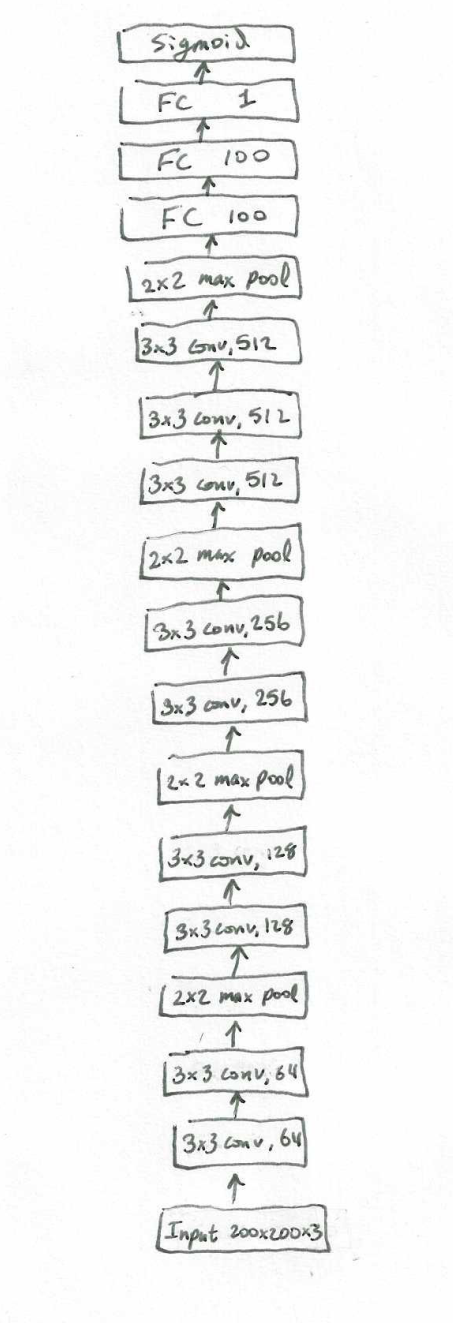 Sigmoid
FC 1
FC 100
FC 100
2x2 max pool
3x3 conv, 512
3x3 conv, 512
3x3 conv, 512
2x2 max pool
3x3 conv, 256
3x3 conv, 256
2x2 max pool
3x3 conv, 128
3x3 conv, 128
2x2 max pool
3x3 conv, 64
3x3 conv, 64
Input 200x200x3